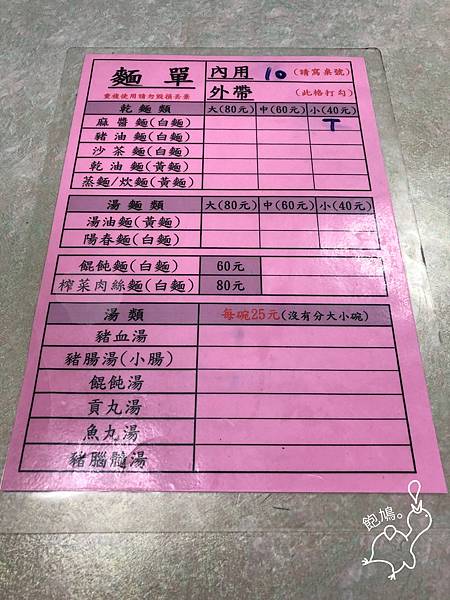 麵單 內用 10 (請寫桌號)
重複使用請勿毀損丟棄 外帶 (此格打勾)
乾麵類 大(80元) 中(60元) 小(40元)
麻醬麵(白麵) T
豬油麵(白麵)
沙茶麵(白麵)
乾油麵(黃麵)
蒸麵/炊麵(黃麵)
湯麵類 大(80元) 中(60元) 小(40元)
湯油麵(黃麵)
陽春麵(白麵)
餛飩麵(白麵) 60元
榨菜肉絲麵(白麵) 80元
湯類 每碗25元(沒有分大小碗)
豬血湯
豬腸湯(小腸)
餛飩湯
貢丸湯
魚丸湯
豬腦髓湯
飽鳩。